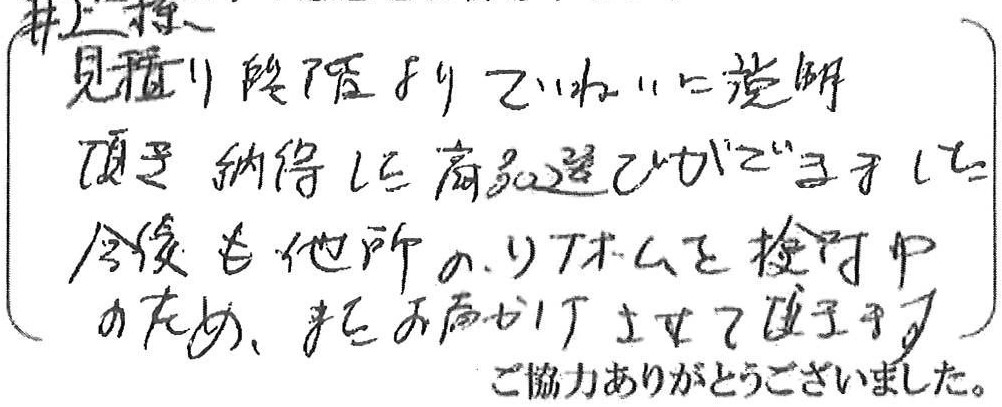 井上様
見積り段階よりていねいに説明
頂き納得した商品選びができました
今後も他所のリフォームを検討中
のため、またお声かけさせて頂きます
ご協力ありがとうございました。